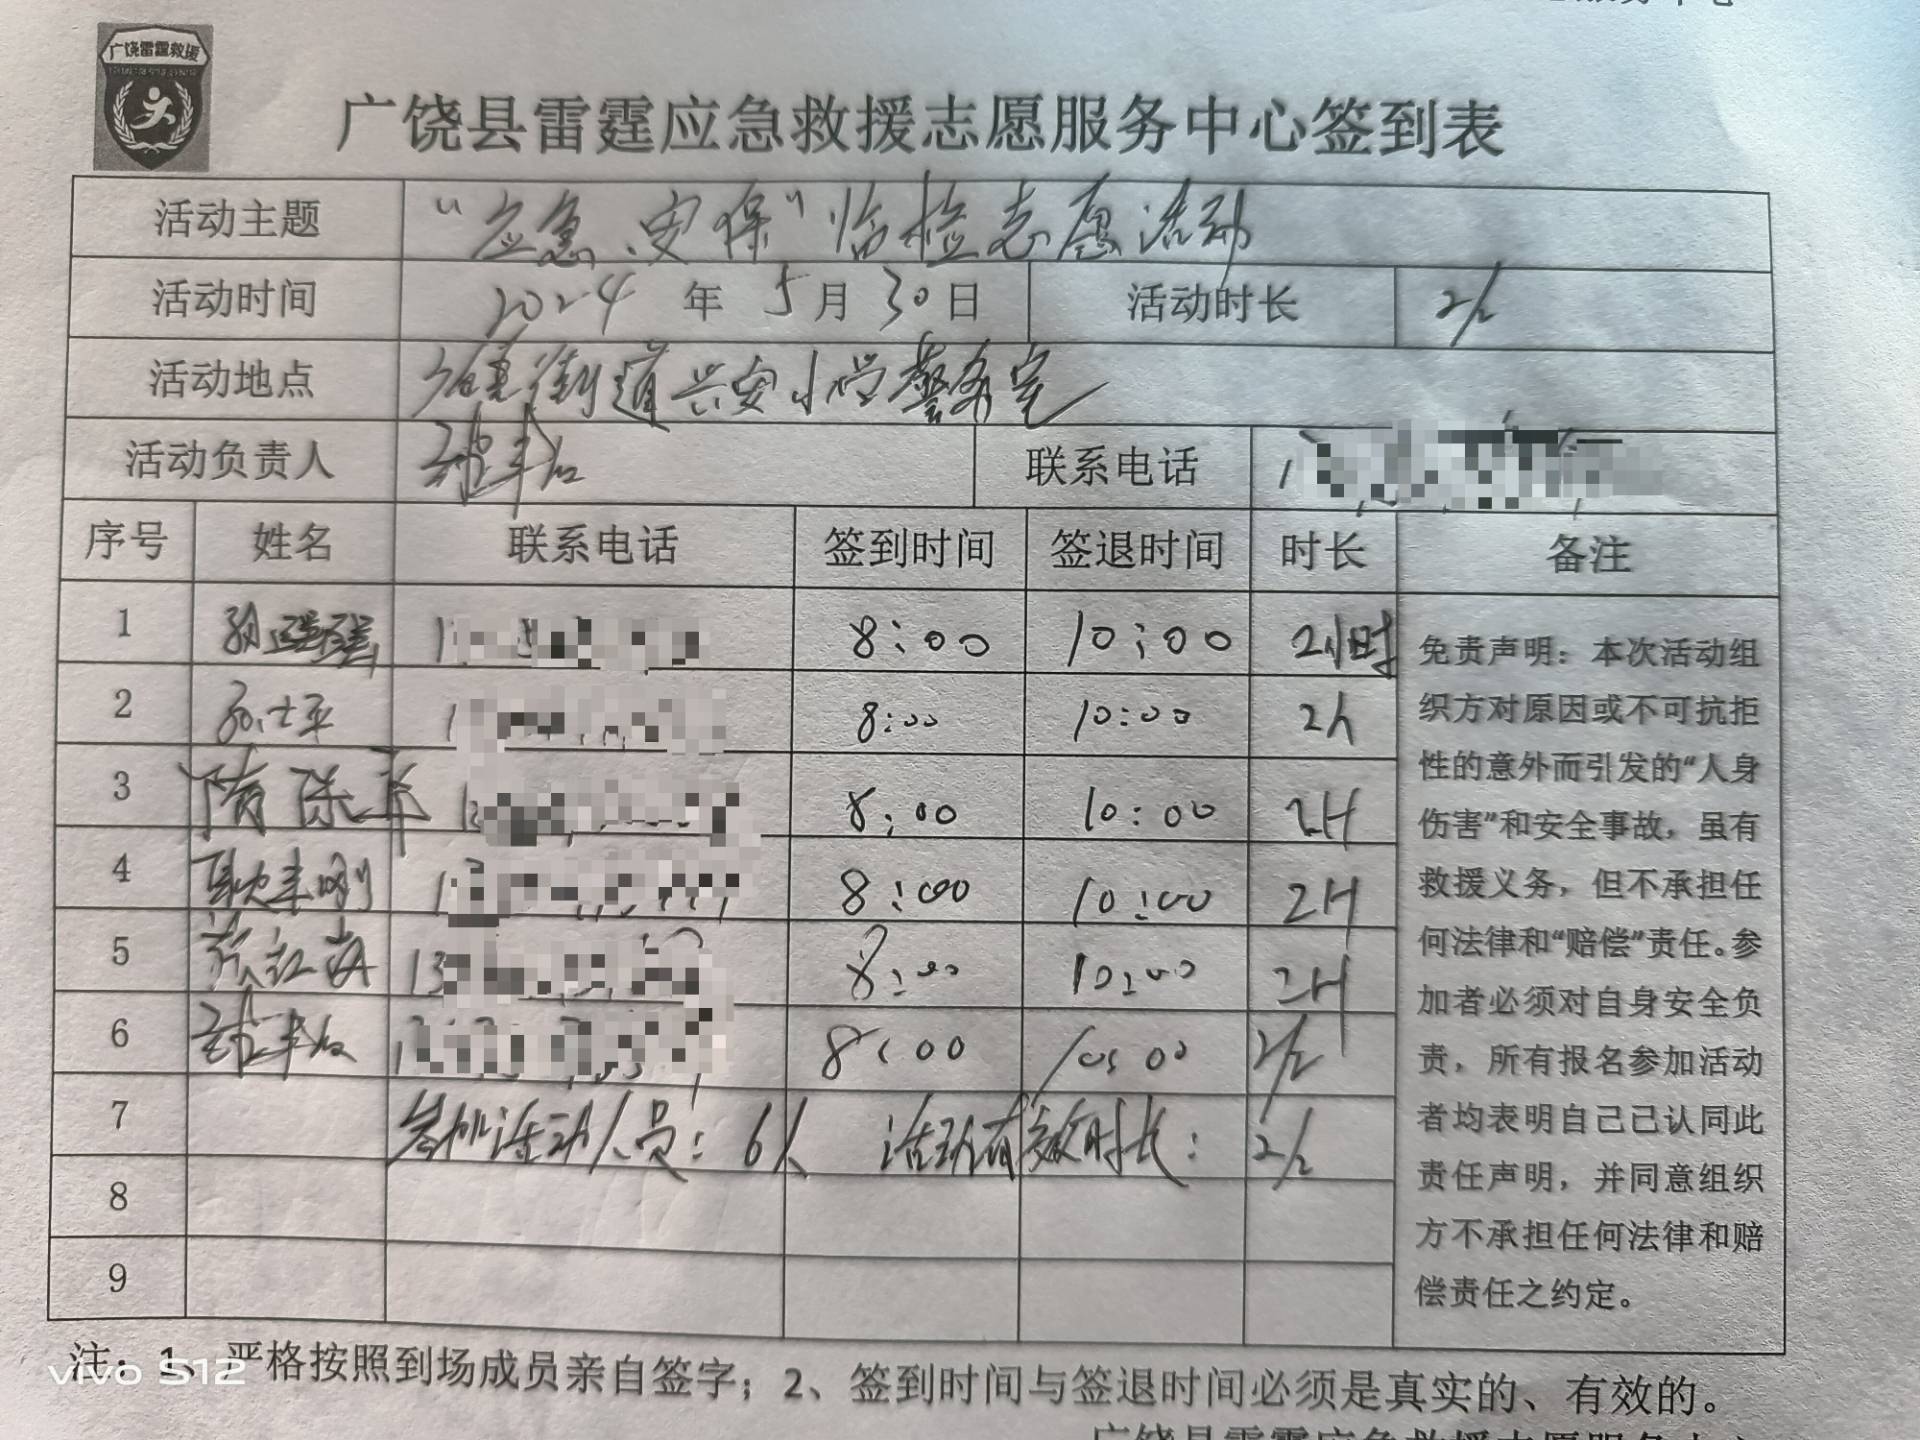 广饶雷霆救援
广饶县雷霆应急救援志愿服务中心签到表
活动主题 “应急、安保”临检志愿活动
活动时间 2024 年 5 月 30 日 活动时长 2h
活动地点 街道兴安小学警务室
活动负责人 联系电话 1
序号 姓名 联系电话 签到时间 签退时间 时长 备注
1 1 8:00 10:00 2小时
2 孙士平 1 8:00 10:00 2h
3 隋保平 1 8:00 10:00 2H
4 耿丰刚 1 8:00 10:00 2H
5 13 8:00 10:00 2H
6 1 8:00 10:00 2h
7 参加活动人员：6人 活动有效时长：2h
8
9
免责声明：本次活动组
织方对原因或不可抗拒
性的意外而引发的“人身
伤害”和安全事故，虽有
救援义务，但不承担任
何法律和“赔偿”责任。参
加者必须对自身安全负
责，所有报名参加活动
者均表明自己已认同此
责任声明，并同意组织
方不承担任何法律和赔
偿责任之约定。
注：1、严格按照到场成员亲自签字；2、签到时间与签退时间必须是真实的、有效的。
vivo S12
广饶县雷霆应急救援志愿服务中心